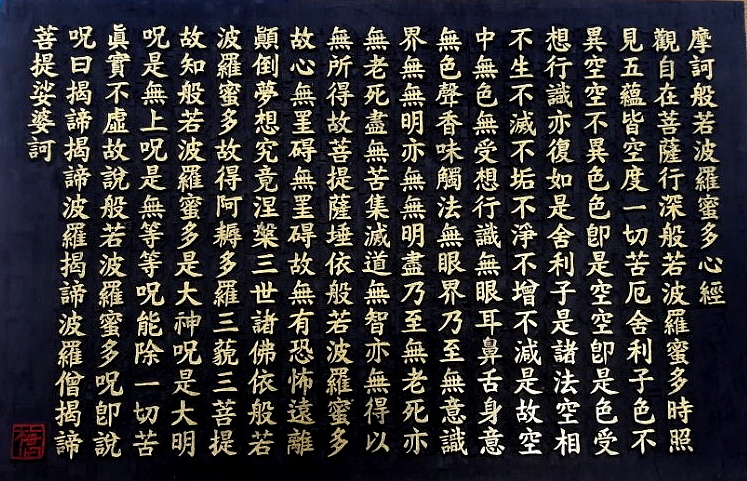 摩訶般若波羅蜜多心經
觀自在菩薩行深般若波羅蜜多時照
見五蘊皆空度一切苦厄舍利子色不
異空空不異色色卽是空空卽是色受
想行識亦復如是舍利子是諸法空相
不生不滅不垢不淨不增不減是故空
中無色無受想行識無眼耳鼻舌身意
無色聲香味觸法無眼界乃至無意識
界無無明亦無無明盡乃至無老死亦
無老死盡無苦集滅道無智亦無得以
無所得故菩提薩埵依般若波羅蜜多
故心無罣碍無罣碍故無有恐怖遠離
顚倒夢想究竟涅槃三世諸佛依般若
波羅蜜多故得阿耨多羅三藐三菩提
故知般若波羅蜜多是大神呪是大明
呪是無上呪是無等等呪能除一切苦
眞實不虛故說般若波羅蜜多呪卽說
呪曰揭諦揭諦波羅揭諦波羅僧揭諦
菩提娑婆訶